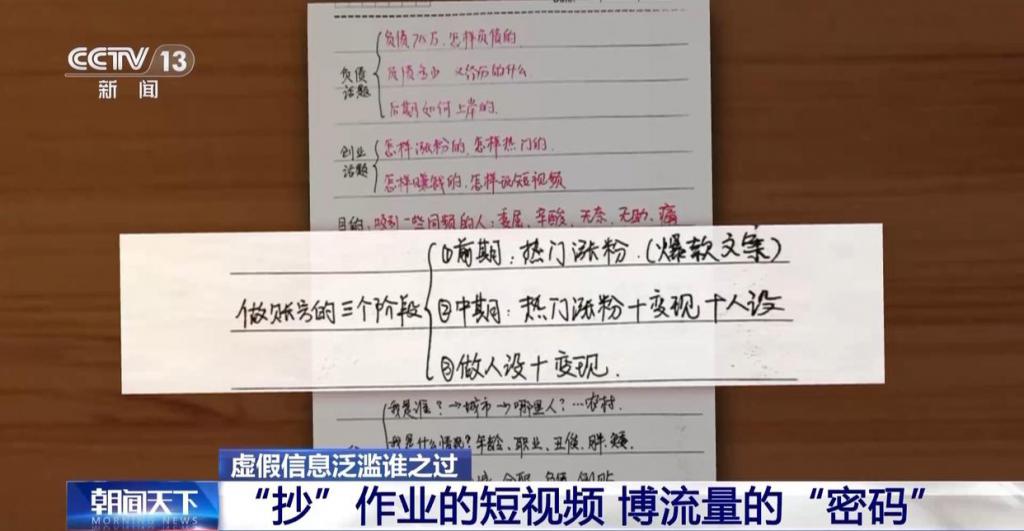 CCTV 13
新闻
负债话题
负债70万，怎样负债的
负债多少 又经历的什么
后期如何上岸的
创业话题
怎样涨粉的，怎样热门的
怎样赚钱的，怎样玩短视频
目的：吸引一些同频的人：委屈、辛酸、无奈、无助、痛
做账号的三个阶段
①前期：热门涨粉.(爆款文案)
②中期：热门涨粉+变现+人设
③做人设+变现.
我是谁？→城市→哪里人？…农村.
我是什么情况？年龄、职业、丑
虚假信息泛滥谁之过
朝闻天下
MORNING NEWS
“抄”作业的短视频 博流量的“密码”